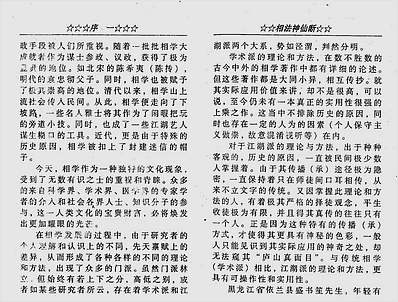 ☆☆☆序 一☆☆☆
政手段被人们所重视。随着一批批相学大
成就者作为谋士参政、议政，获得了极为
显赫的地位。如北宋的陈希夷（陈传），
明代的袁忠彻父子。同时，相学也被赋予
了极其崇高的地位。清代以来，相学山上
流社会传入民间。从此，相学便走向了下
坡路，一些名人雅士将其作为了闷暇把玩
的旁道小技。同时，也成了一些江湖艺人
谋生糊口的工具。近代，更是由于特殊的
历史原因，相学被扣上了封建迷信的帽
子。
今天，相学作为一种独特的文化现象，
受到了无数有识之士的重视和青睐。众多
的来自科学界、学术界、医学界的专家学
者的介入和社会各界人士、知识分子的参
与，这一人类文化的宝贵财富，必将焕发
出更加耀眼的光芒。
在相学发展的过程中，由于研究者的
个人理解和认识上的不同，先天禀赋上的
差异，从而形成了各种各样不同的理论
和方法，出现了众多的门派。虽然门派林
立，但始终有若上下之分，高低之别，或
者如某些研究者所云，存在着学术派和江
☆☆相法神仙断☆☆
湖派两个大系，势如泾渭，判然分明。
学术派的理论和方法，在数不胜数的
古今中外的相学著作中都有详细的论述。
但这些著作都是大同小异，相互传抄。就
其实际应用价值来讲，却不是很高，可以
说，至今仍未有一本真正的实用性很强的
上乘之作。这当中不排除历史的原因，同
时也存在一定的人为的因素（个人保守主
义做崇，故意混淆视听等）在内。
对于江湖派的理论与方法，出于种种
客观的、历史的原因，一直被民间极少数
人掌握着。由于其传播（承）途径极为隐
密，一直保持着只在师徒间口耳相传，从
来不立文字的传统。又因掌握此理论和方
法的人，有着极其严格的择徒观念，平生
收徒极为有限，并且得其真传的往往只有
一个人。正是因为这种特有的传播（承）
方式，才使得其更具有神秘的色彩，一般
人只能见识到其实际应用的神奇之处，却
无法窥其“庐山真面目”。与传统相学
（学术派）相比，江湖派的理论与方法，更
具有可操作性和实用性。
黑龙江省依兰县盛书笙先生，年轻有